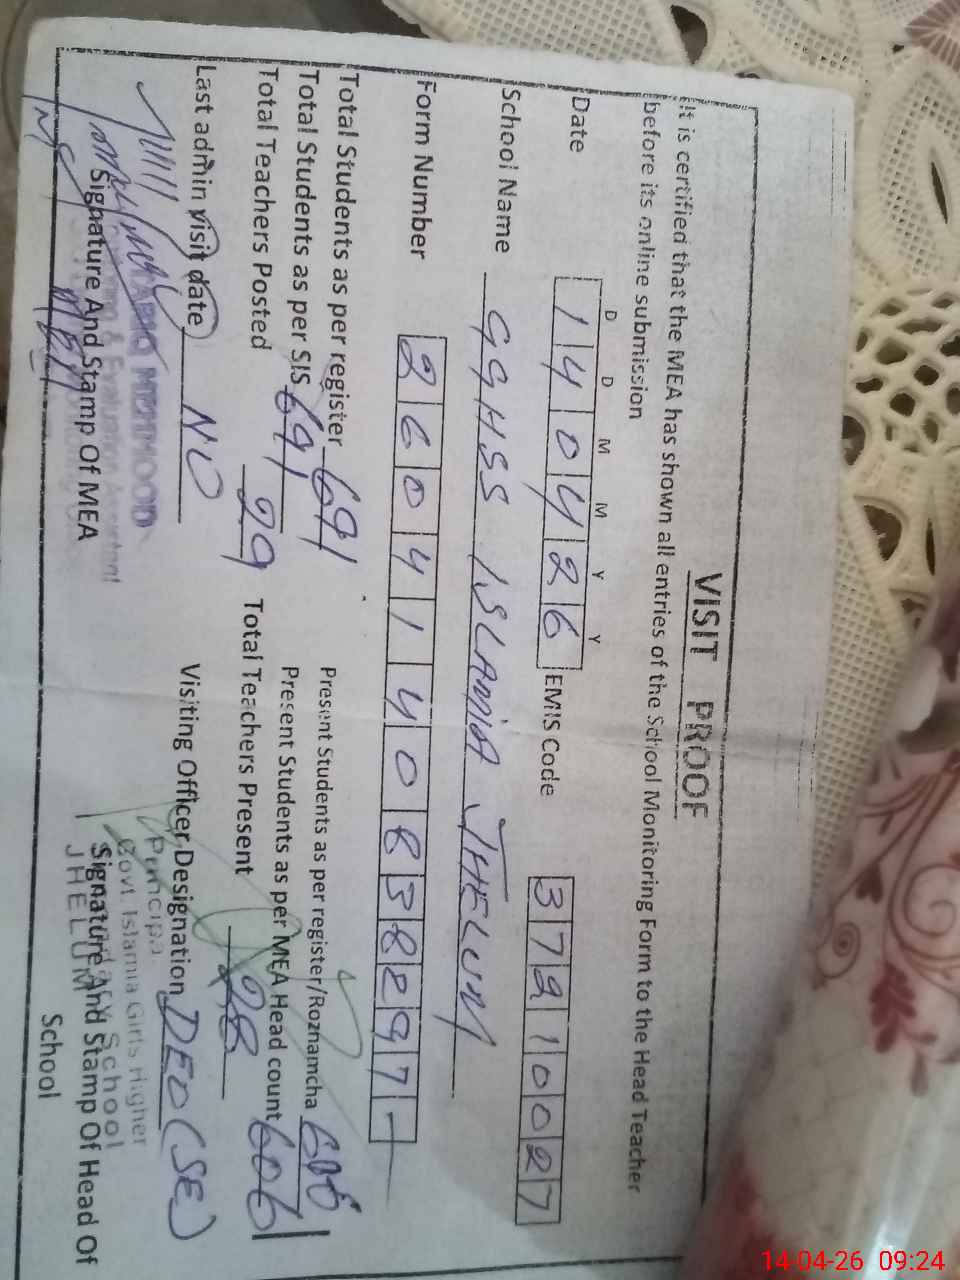 VISIT PROOF
It is certified that the MEA has shown all entries of the School Monitoring Form to the Head Teacher
before its online submission
D D M M Y Y
Date 1 4 0 4 2 6 EMIS Code 3 7 2 1 0 0 2 7
School Name GGHSS ISLAMIA JHELUM
Form Number 2 6 0 4 1 4 0 8 3 8 2 9 7
Total Students as per register 691 Present Students as per register/Roznamcha 606
Total Students as per SIS 691 Present Students as per MEA Head count 606
Total Teachers Posted 29 Total Teachers Present 28
Last admin visit date NO Visiting Officer Designation DEO (SE)
TARIQ MEHMOOD
Monitoring & Evaluation Assistant
Signature And Stamp Of MEA
Principal
Govt. Islamia Girls Higher
Secondary School
JHELUM
Signature And Stamp Of Head Of
School
14-04-26 09:24